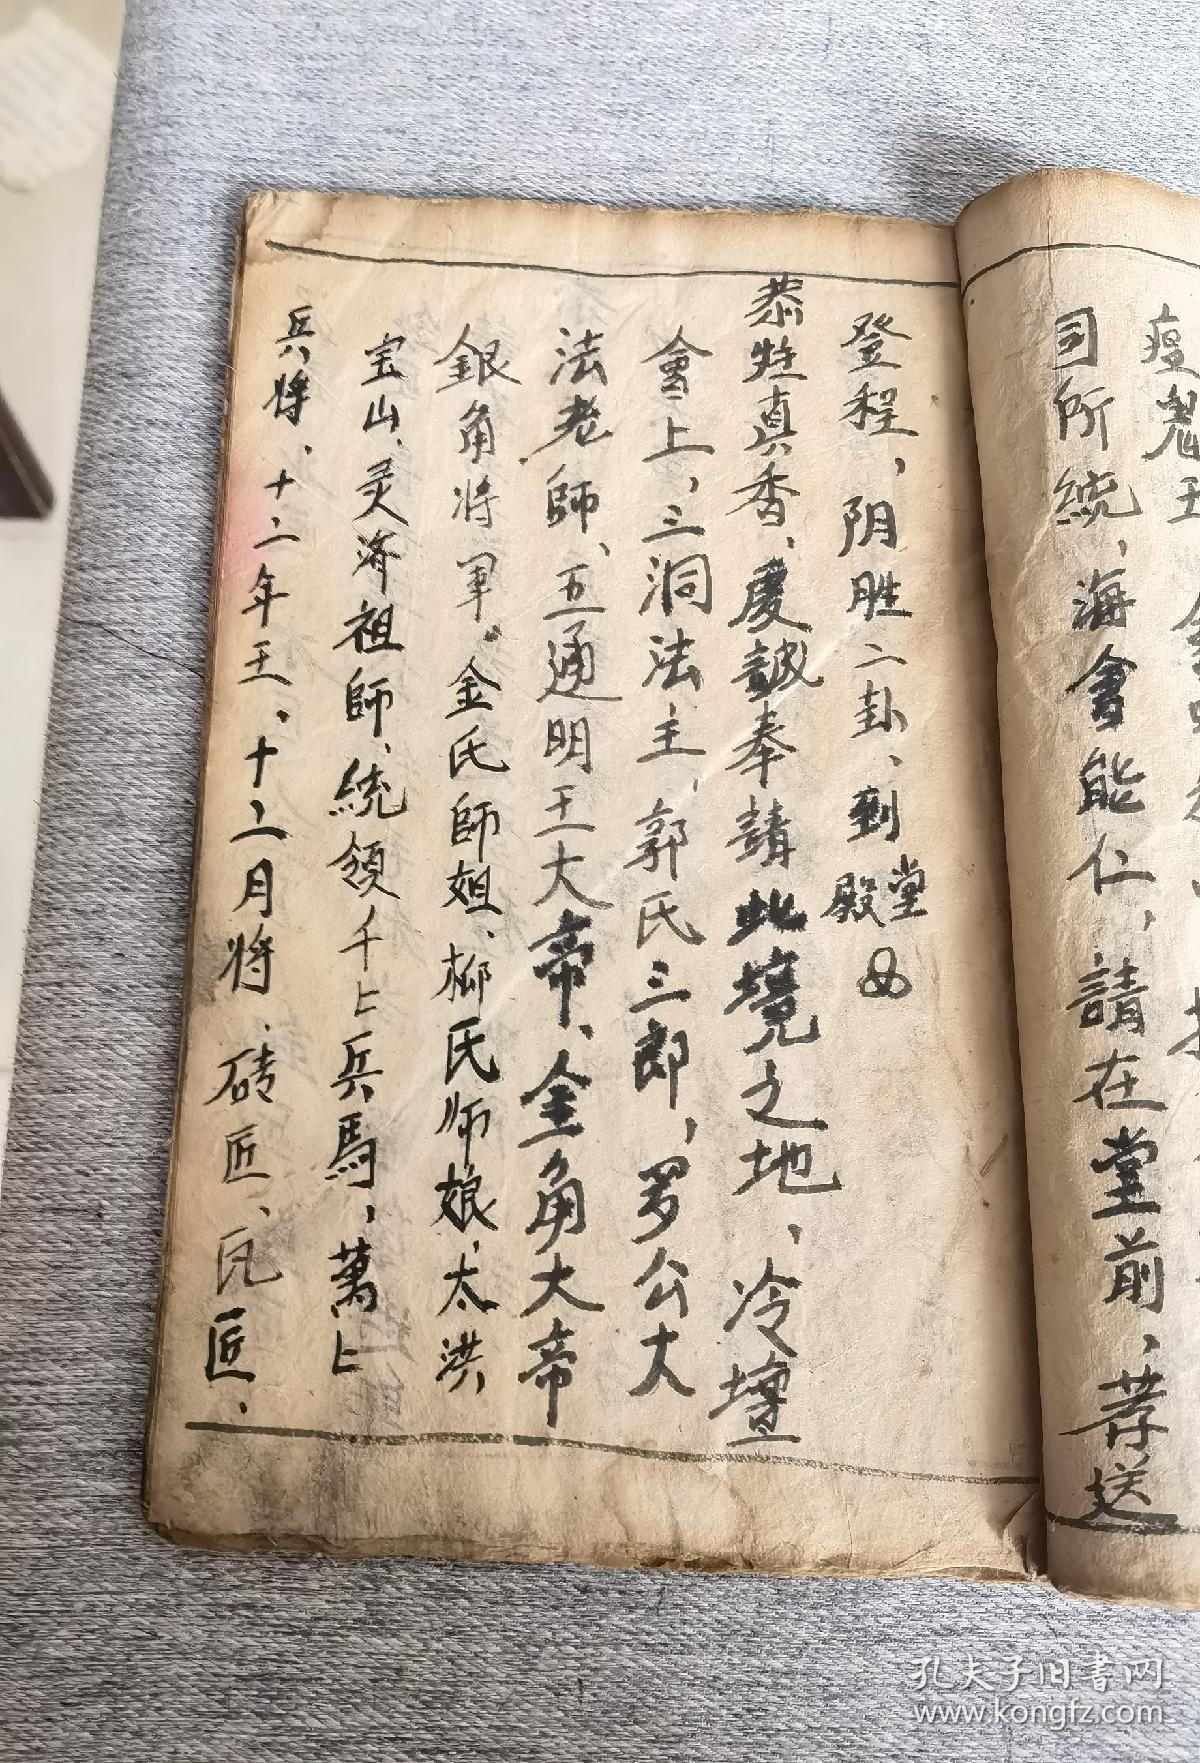 瘟鬼王
司所統，海會能仁，請在堂前，荐送
登程，阴胜二卦、到堂殿
恭炷真香、慶誠奉請此境之地、冷壇
會上，三洞法主、郭氏三郎，罗公大
法老師、五通明王大帝、金角大帝
銀角将军、金氏師姐、柳氏师娘、太洪
宝山、灵济祖師、統領千上兵馬，萬上
兵将、十二年王、十二月将、砖匠、瓦匠、
孔夫子旧書网
www.kongfz.com